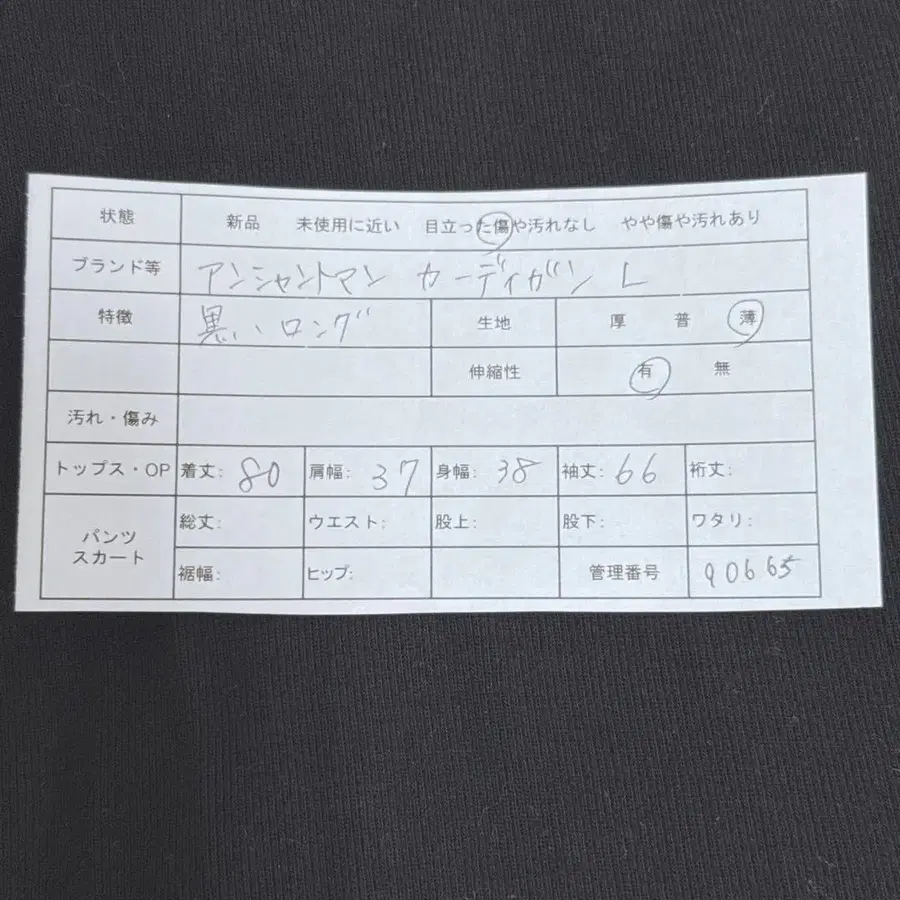 状態 新品 未使用に近い 目立った傷や汚れなし やや傷や汚れあり
ブランド等 アンシャントマン カーディガン L
特徴 黒い ロング 生地 厚 普 薄
伸縮性 有 無
汚れ・傷み
トップス・OP 着丈: 80 肩幅: 37 身幅: 38 袖丈: 66 裄丈:
パンツ 総丈: ウエスト: 股上: 股下: ワタリ:
スカート 裾幅: ヒップ: 管理番号 90665